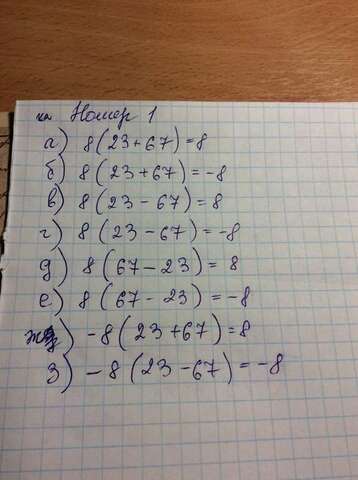 Номер 1
а) 8(23+67)=8
б) 8(23+67)=-8
в) 8(23-67)=8
г) 8(23-67)=-8
д) 8(67-23)=8
е) 8(67-23)=-8
ж) -8(23+67)=8
з) -8(23-67)=-8